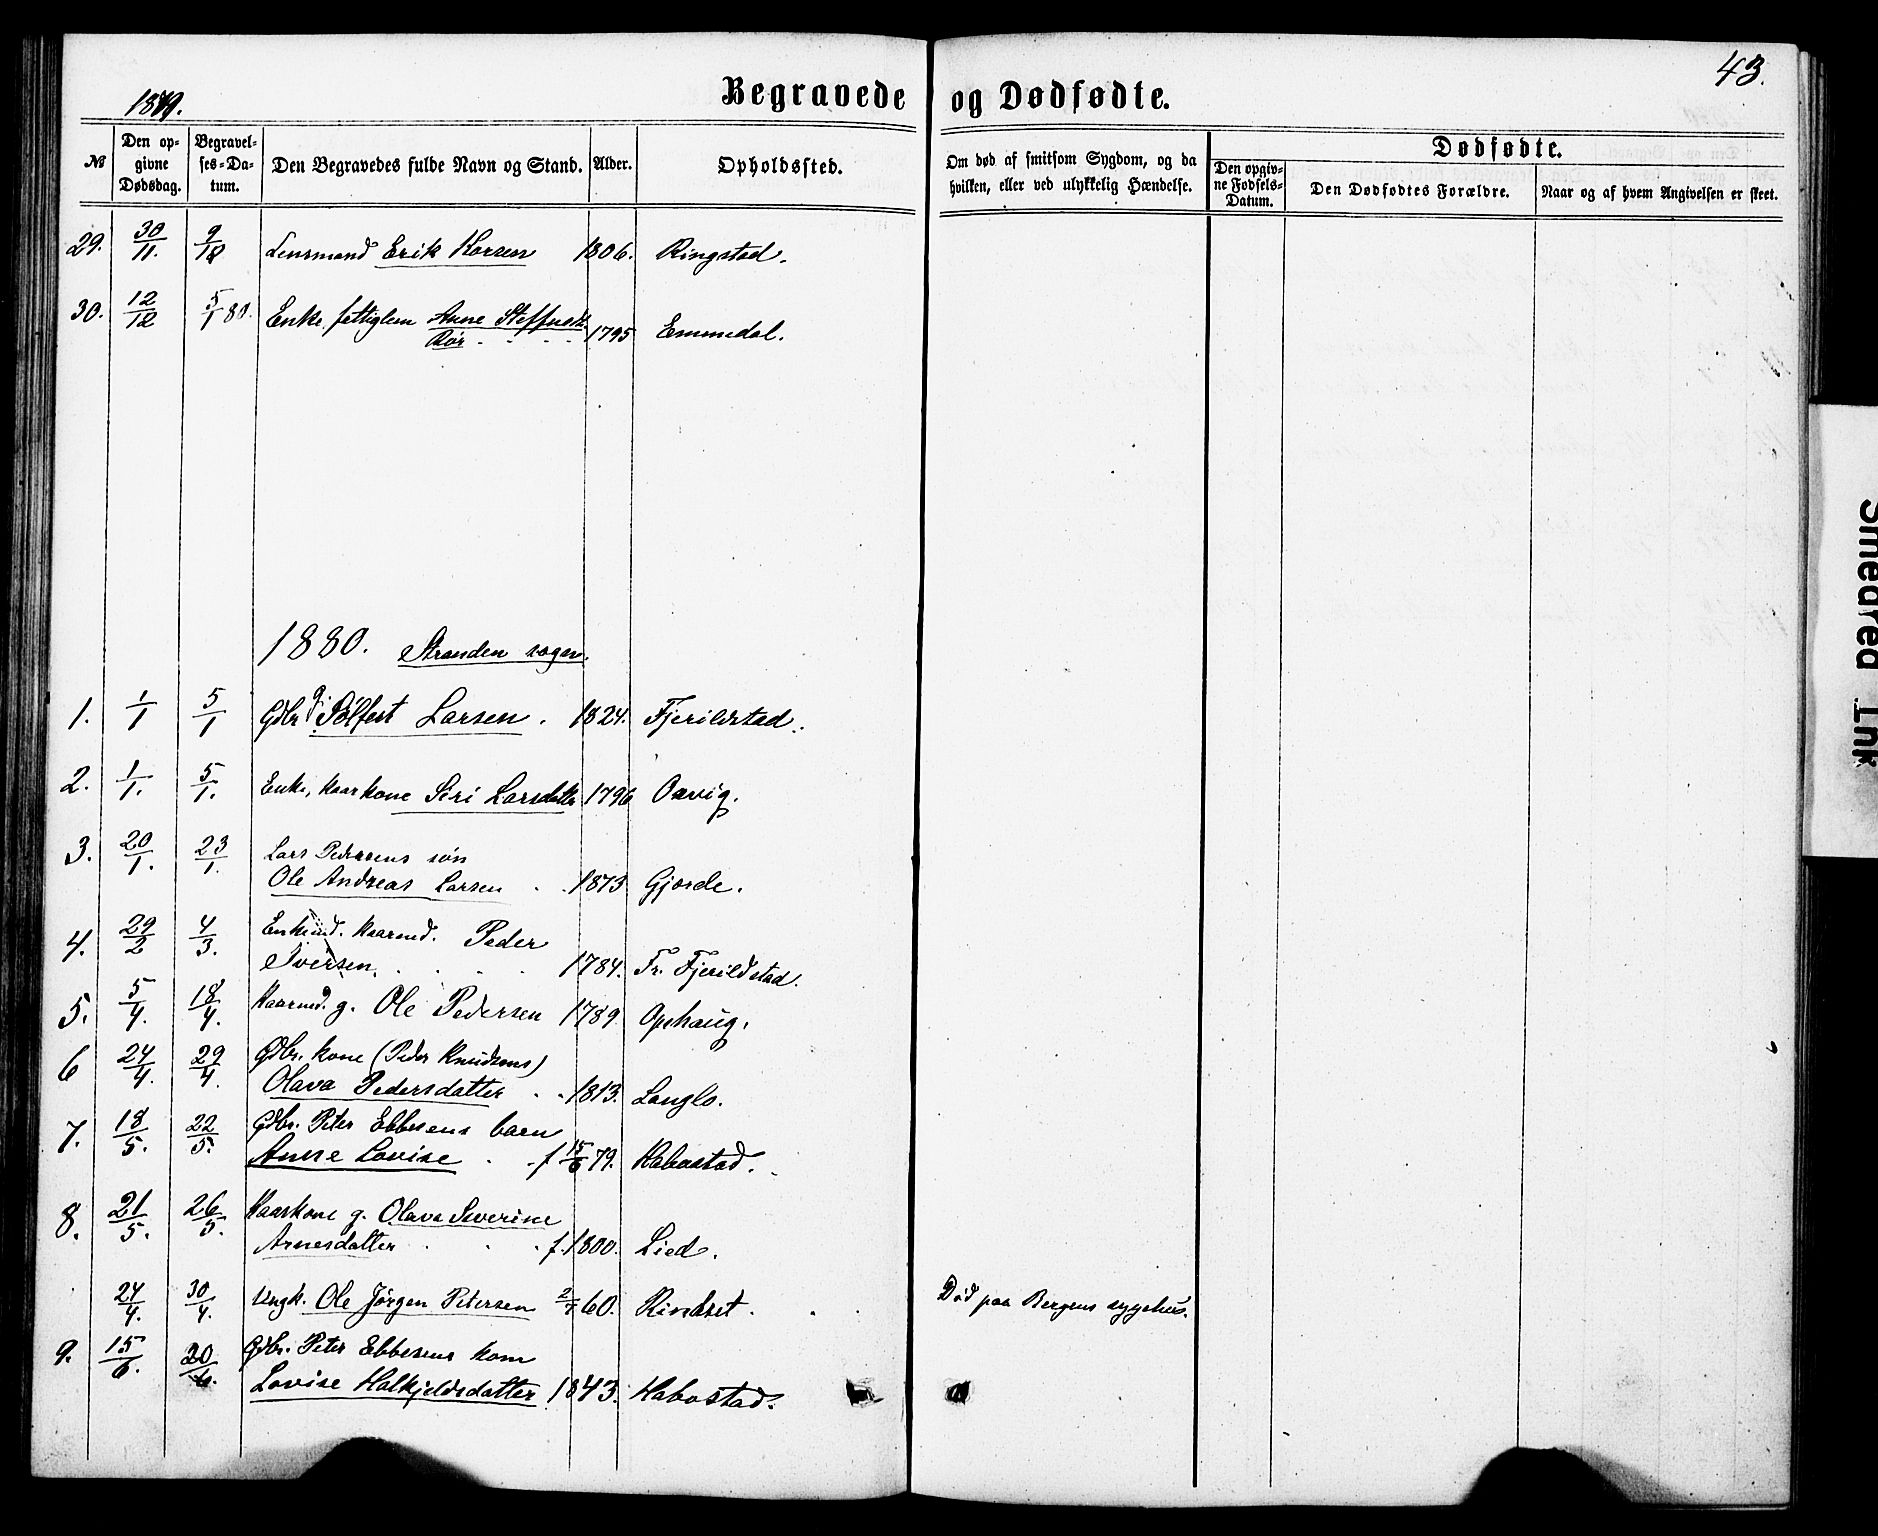 1879.
Begravede og Dødfødte.
43.
№
Den opgivne Dødsdag.
Begravelses-Datum.
Den Begravedes fulde Navn og Stand.
Alder.
Opholdssted.
Om død af smitsom Sygdom, og da hvilken, eller ved ulykkelig Hændelse.
Dødfødte.
Den opgivne Fødsels-Datum.
Den Dødfødtes Forældre.
Naar og af hvem Angivelsen er skeet.
29. 30/11. 9/12 Lensmand Erik Korsen 1806. Ringstad.
30. 12/12 5/1 80. Enke, fattiglem Anne Steffensd.
Rør 1795 Emmedal.
1880. Stranden sogn.
1. 1/1 5/1 Gdbr. g. Sølfest Larsen. 1824. Fjerildstad.
2. 1/1. 5/1. Enke, kaarkone Siri Larsdatter 1796 Oavig.
3. 20/1. 23/1. Lars Pedersens søn
Ole Andreas Larsen 1873 Gjærde.
4. 29/2 4/3. Enkemd. kaarmd. Peder
Iversen. 1784. Fr. Fjerildstad.
5. 5/4. 18/4. Kaarmd. g. Ole Pedersen 1789. Opshaug.
6 24/4. 29/4. Gdbr. kone (Peder Knudsens)
Olava Pedersdatter 1813. Langlo.
7. 18/5. 22/5. Gdbr. Peter Ebbesens barn
Anne Lovise f 15/6 79. Habostad.
8. 21/5. 26/5. Kaarkone g. Olava Severine
Arnesdatter f. 1800. Lied.
24/4. 30/4. Ungk. Ole Jørgen Petersen 2/7 60. Rindset. Død paa Bergens sygehus.
9. 15/6. 20/6. Gdbr. Peter Ebbesens kone
Lovise Halkjeldsdatter 1843. Habostad.
Smedred Ink